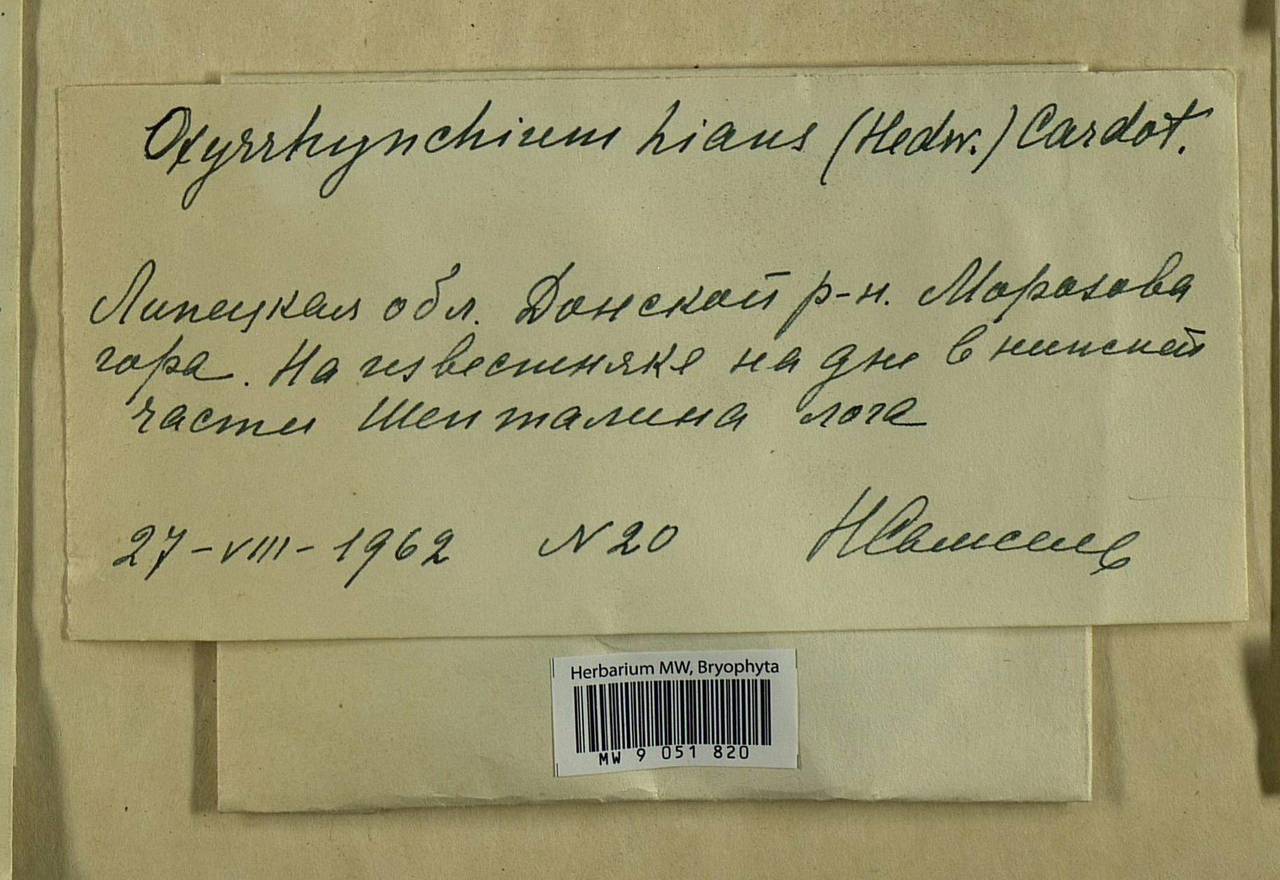 Oxyrrhynchium hians (Hedw.) Cardot.
Липецкая обл. Донской р-н. Морозова
гора. На известняке на дне в нижней
части Шепталина лога
27-VIII-1962 N 20
Herbarium MW, Bryophyta
MW 9 051 820